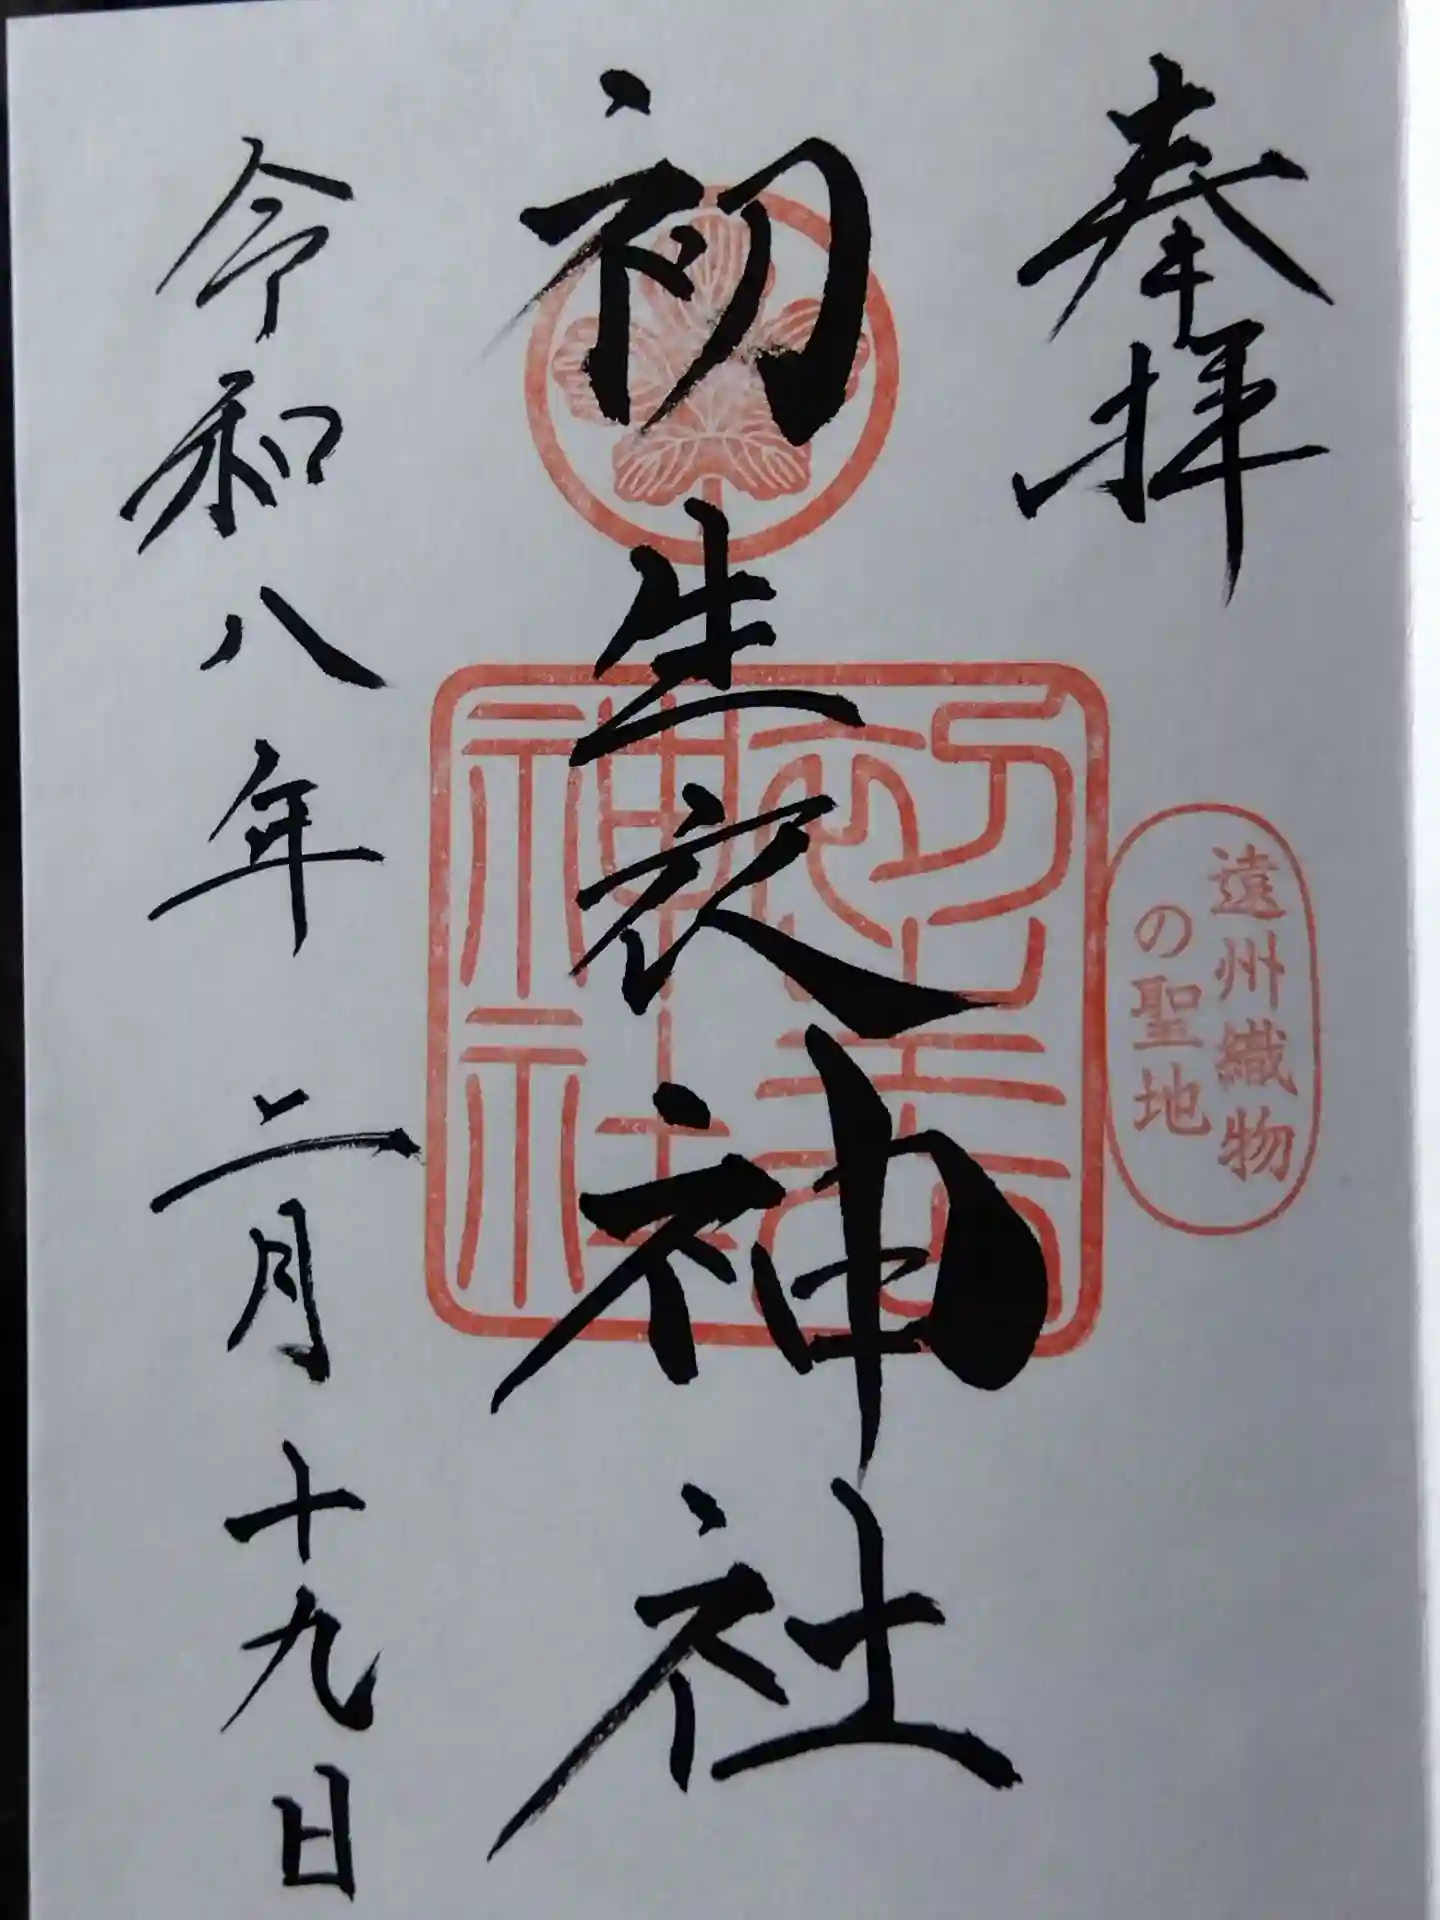 奉拝
遠州織物
の聖地
初生衣神社
初生衣
神社
令和八年二月十九日